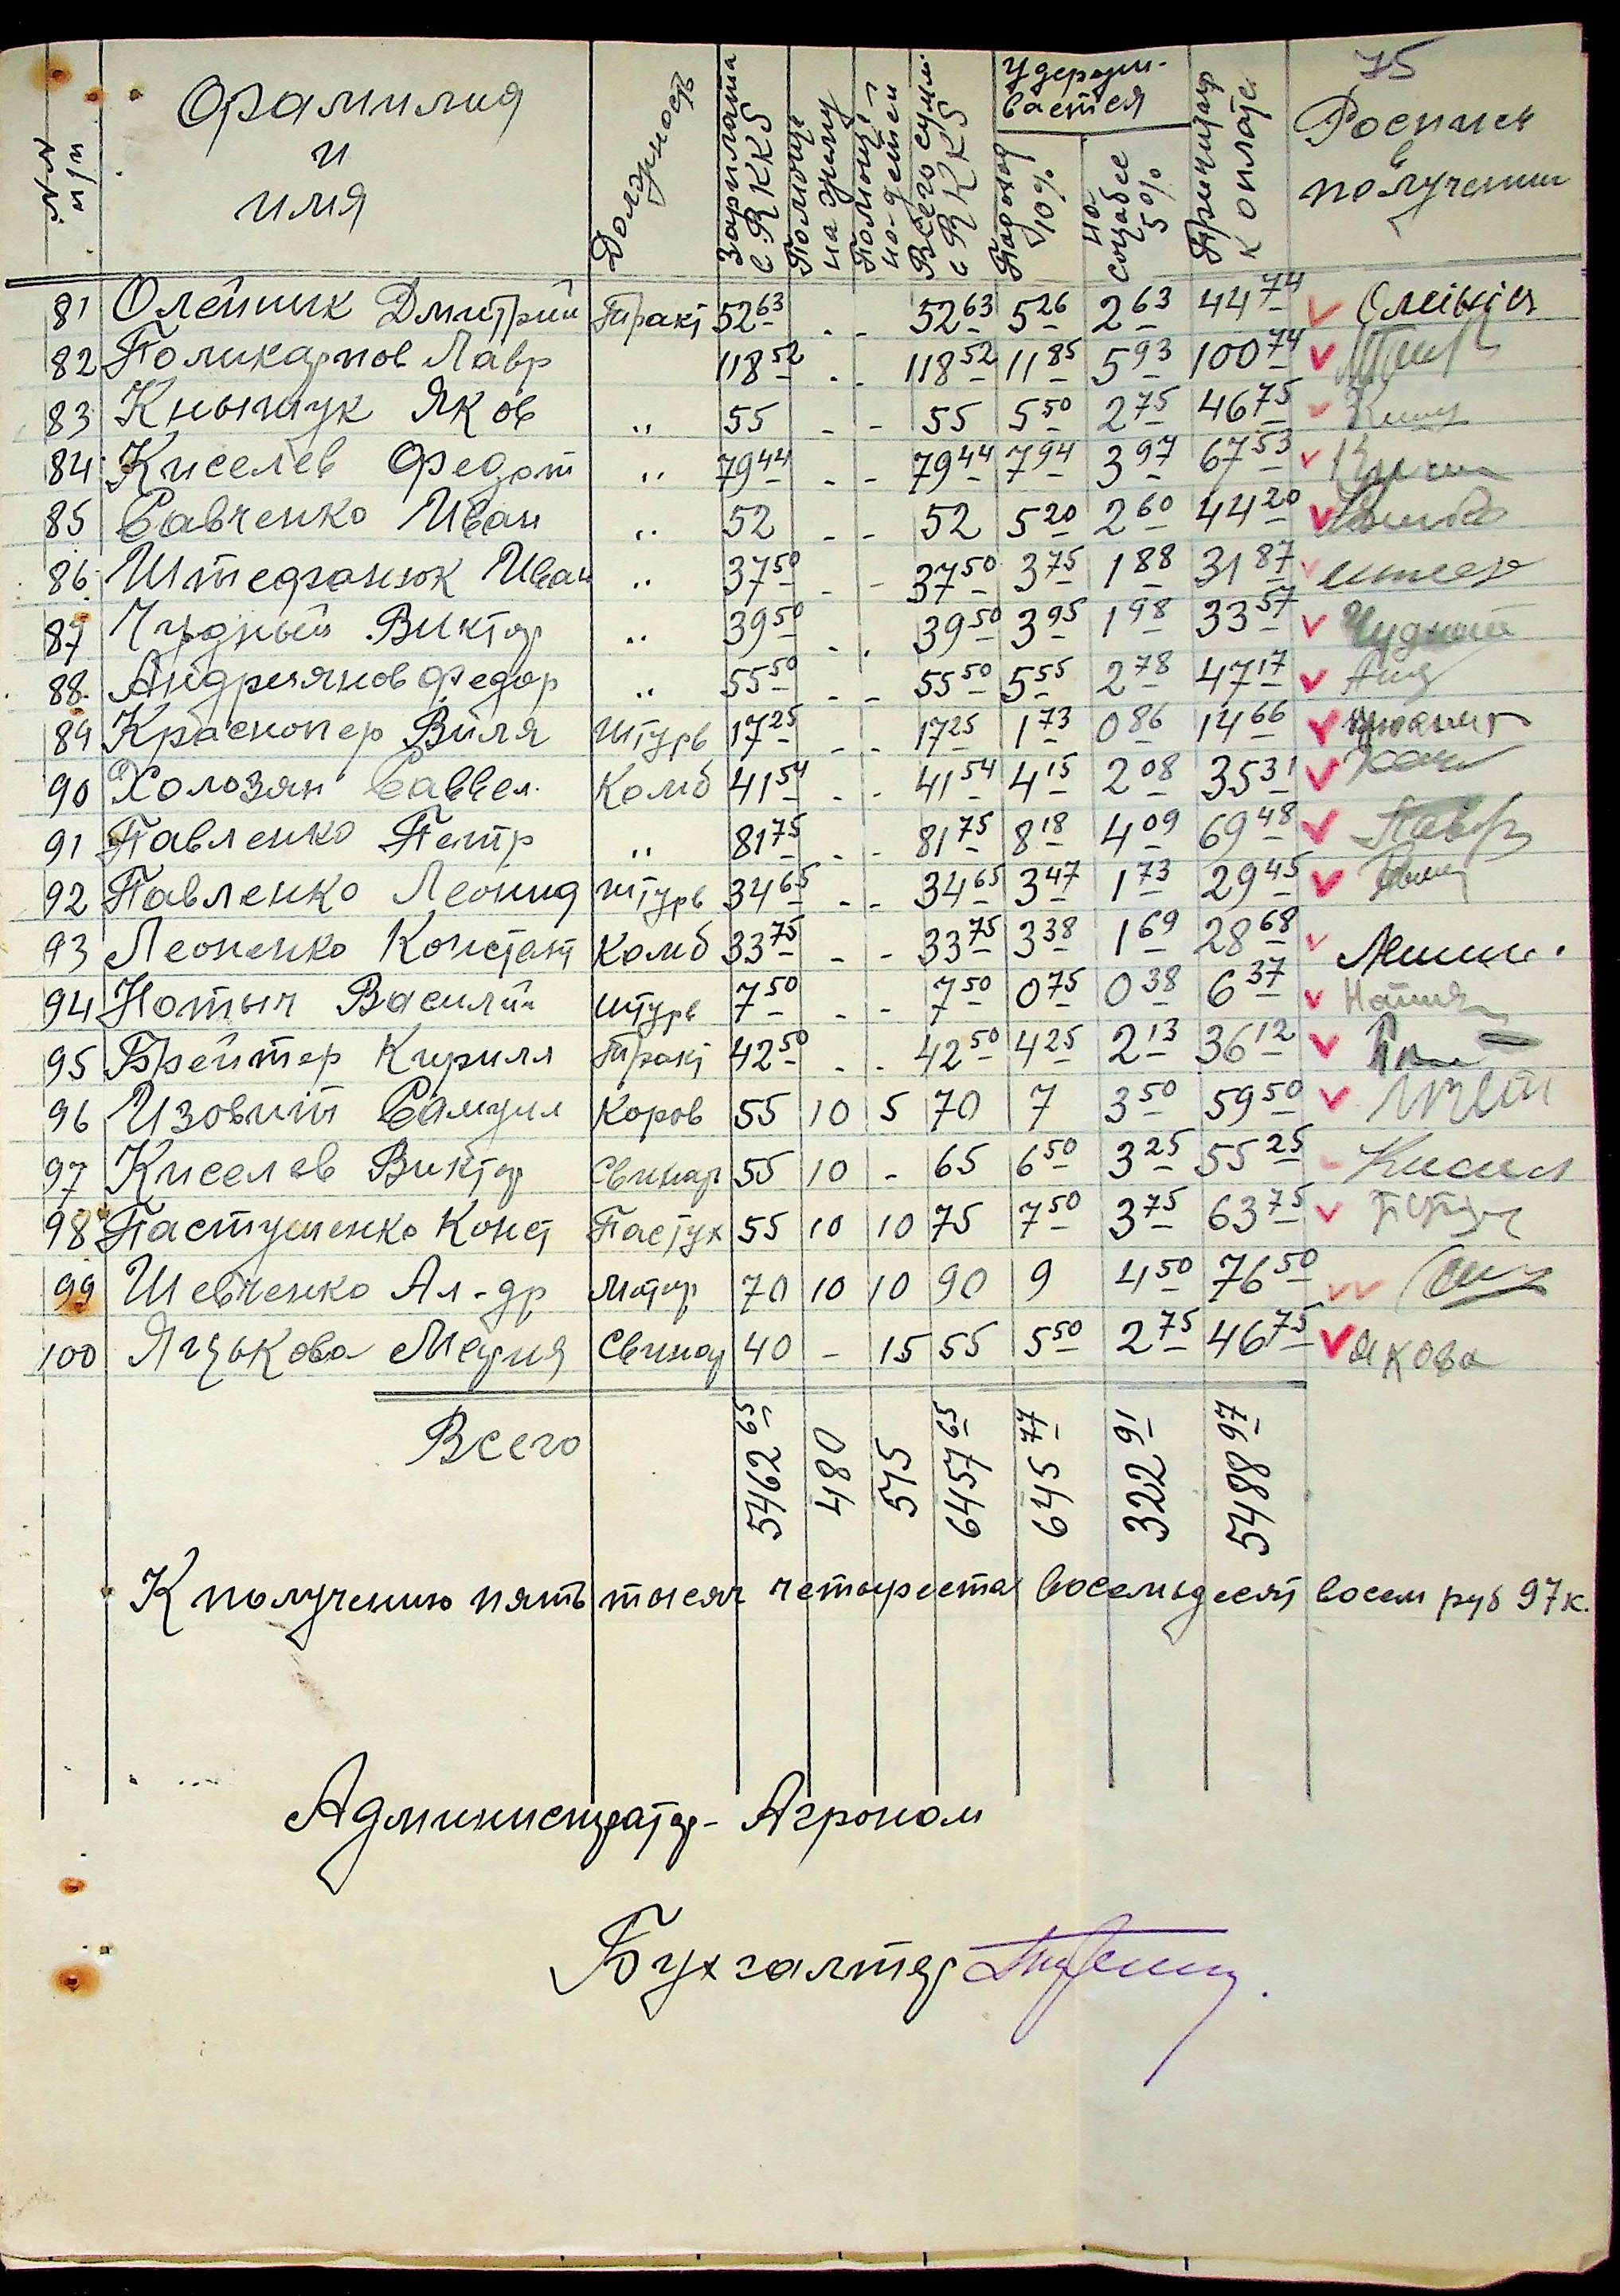 75
№№ п/п Фамилия и имя Должность Зарплата с RKKS Помощь на жену Помощь на детей Всего сумм. с RKKS Удерживается Подоход 10% по соцобес 5% Причитает к оплате Роспись в получении
81 Олейник Дмитрий Тракт 52 63 - - 52 63 5 26 2 63 44 74 Олейник
82 Поликарпов Лавр 118 52 - - 118 52 11 85 5 93 100 74
83 Кнышук Яков " 55 - - 55 5 50 2 75 46 75
84 Киселев Федот " 79 44 - - 79 44 7 94 3 97 67 53
85 Савченко Иван " 52 - - 52 5 20 2 60 44 20
86 Штефанюк Иван " 37 50 - - 37 50 3 75 1 88 31 87
87 Чудный Виктор " 39 50 - - 39 50 3 95 1 98 33 57 Чудный
88 Андриянов Федор " 55 50 - - 55 50 5 55 2 78 47 17
89 Краснопер Виля Штурв 17 25 - - 17 25 1 73 0 86 14 66
90 Холозян Саввел. Комб 41 54 - - 41 54 4 15 2 08 35 31
91 Павленко Петр " 81 75 - - 81 75 8 18 4 09 69 48
92 Павленко Леонид Штурв 34 65 - - 34 65 3 47 1 73 29 45
93 Леоненко Констант Комб 33 75 - - 33 75 3 38 1 69 28 68
94 Нотыч Василий Штурв 7 50 - - 7 50 0 75 0 38 6 37
95 Брейтер Кирилл Тракт 42 50 - - 42 50 4 25 2 13 36 12
96 Изовит Самуил Коров 55 10 5 70 7 3 50 59 50
97 Киселев Виктор Свинар 55 10 - 65 6 50 3 25 55 25
98 Пастушенко Конст Пастух 55 10 10 75 7 50 3 75 63 75
99 Шевченко Ал-др Мотор 70 10 10 90 9 4 50 76 50
100 Яцькова Мария Свинар 40 - 15 55 5 50 2 75 46 75 Яхова
Всего 5462 65 480 515 6457 65 645 77 322 91 5488 97
К получению пять тысяч четыреста восемьдесят восем руб 97 к.
Администратор - Агроном
Бухгалтер